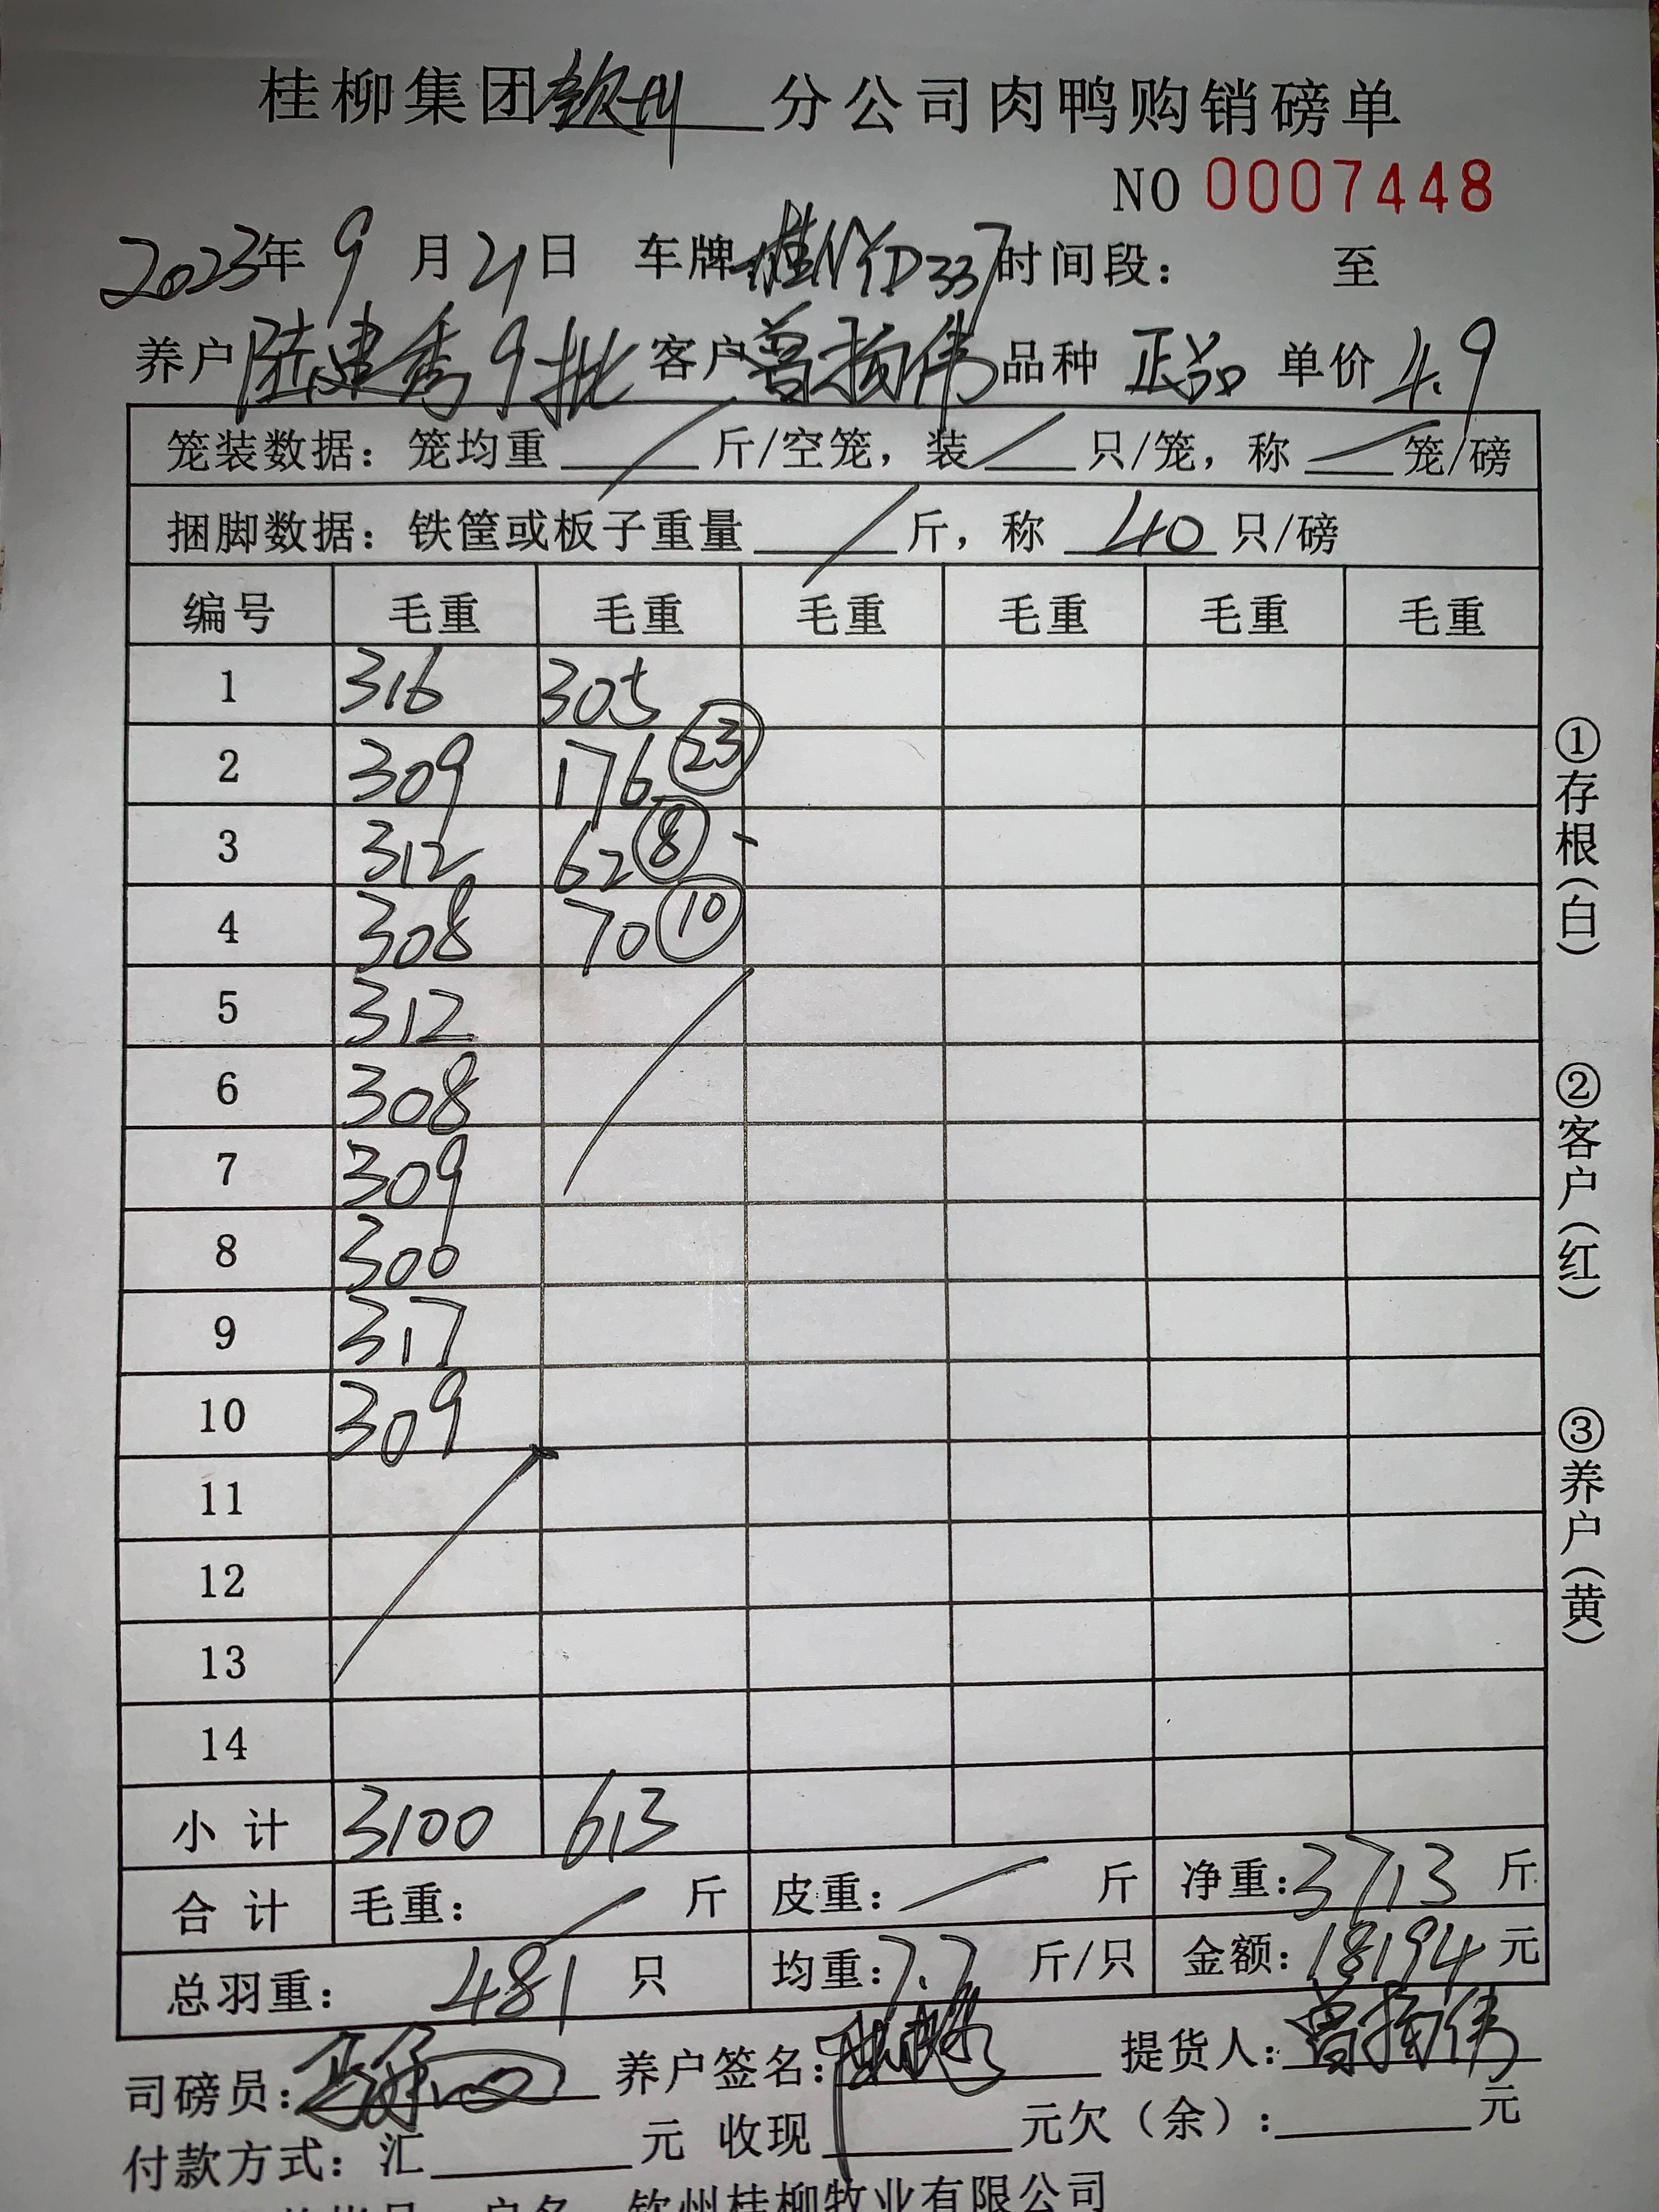 桂柳集团钦州分公司肉鸭购销磅单
NO 0007448
2023年 9 月 21 日 车牌 桂NYD337 时间段: 至
养户 陆建秀9批 客户 曾振伟 品种 正品 单价 4.9
笼装数据: 笼均重 / 斤/空笼, 装 / 只/笼, 称 / 笼/磅
捆脚数据: 铁筐或板子重量 / 斤, 称 40 只/磅
编号 毛重 毛重 毛重 毛重 毛重 毛重
1 316 305
2 309 176 ㉓
3 312 62 ⑧
4 308 70 ⑩
5 312
6 308
7 309
8 300
9 317
10 309
11
12
13
14
小计 3100 613
合计 毛重: / 斤 皮重: / 斤 净重: 3713 斤
总羽重: 481 只 均重: 7.7 斤/只 金额: 18194 元
司磅员: 养户签名: 提货人: 曾振伟
付款方式: 汇 元 收现 元欠(余): 元
户名 钦州桂柳牧业有限公司
①存根(白)
②客户(红)
③养户(黄)